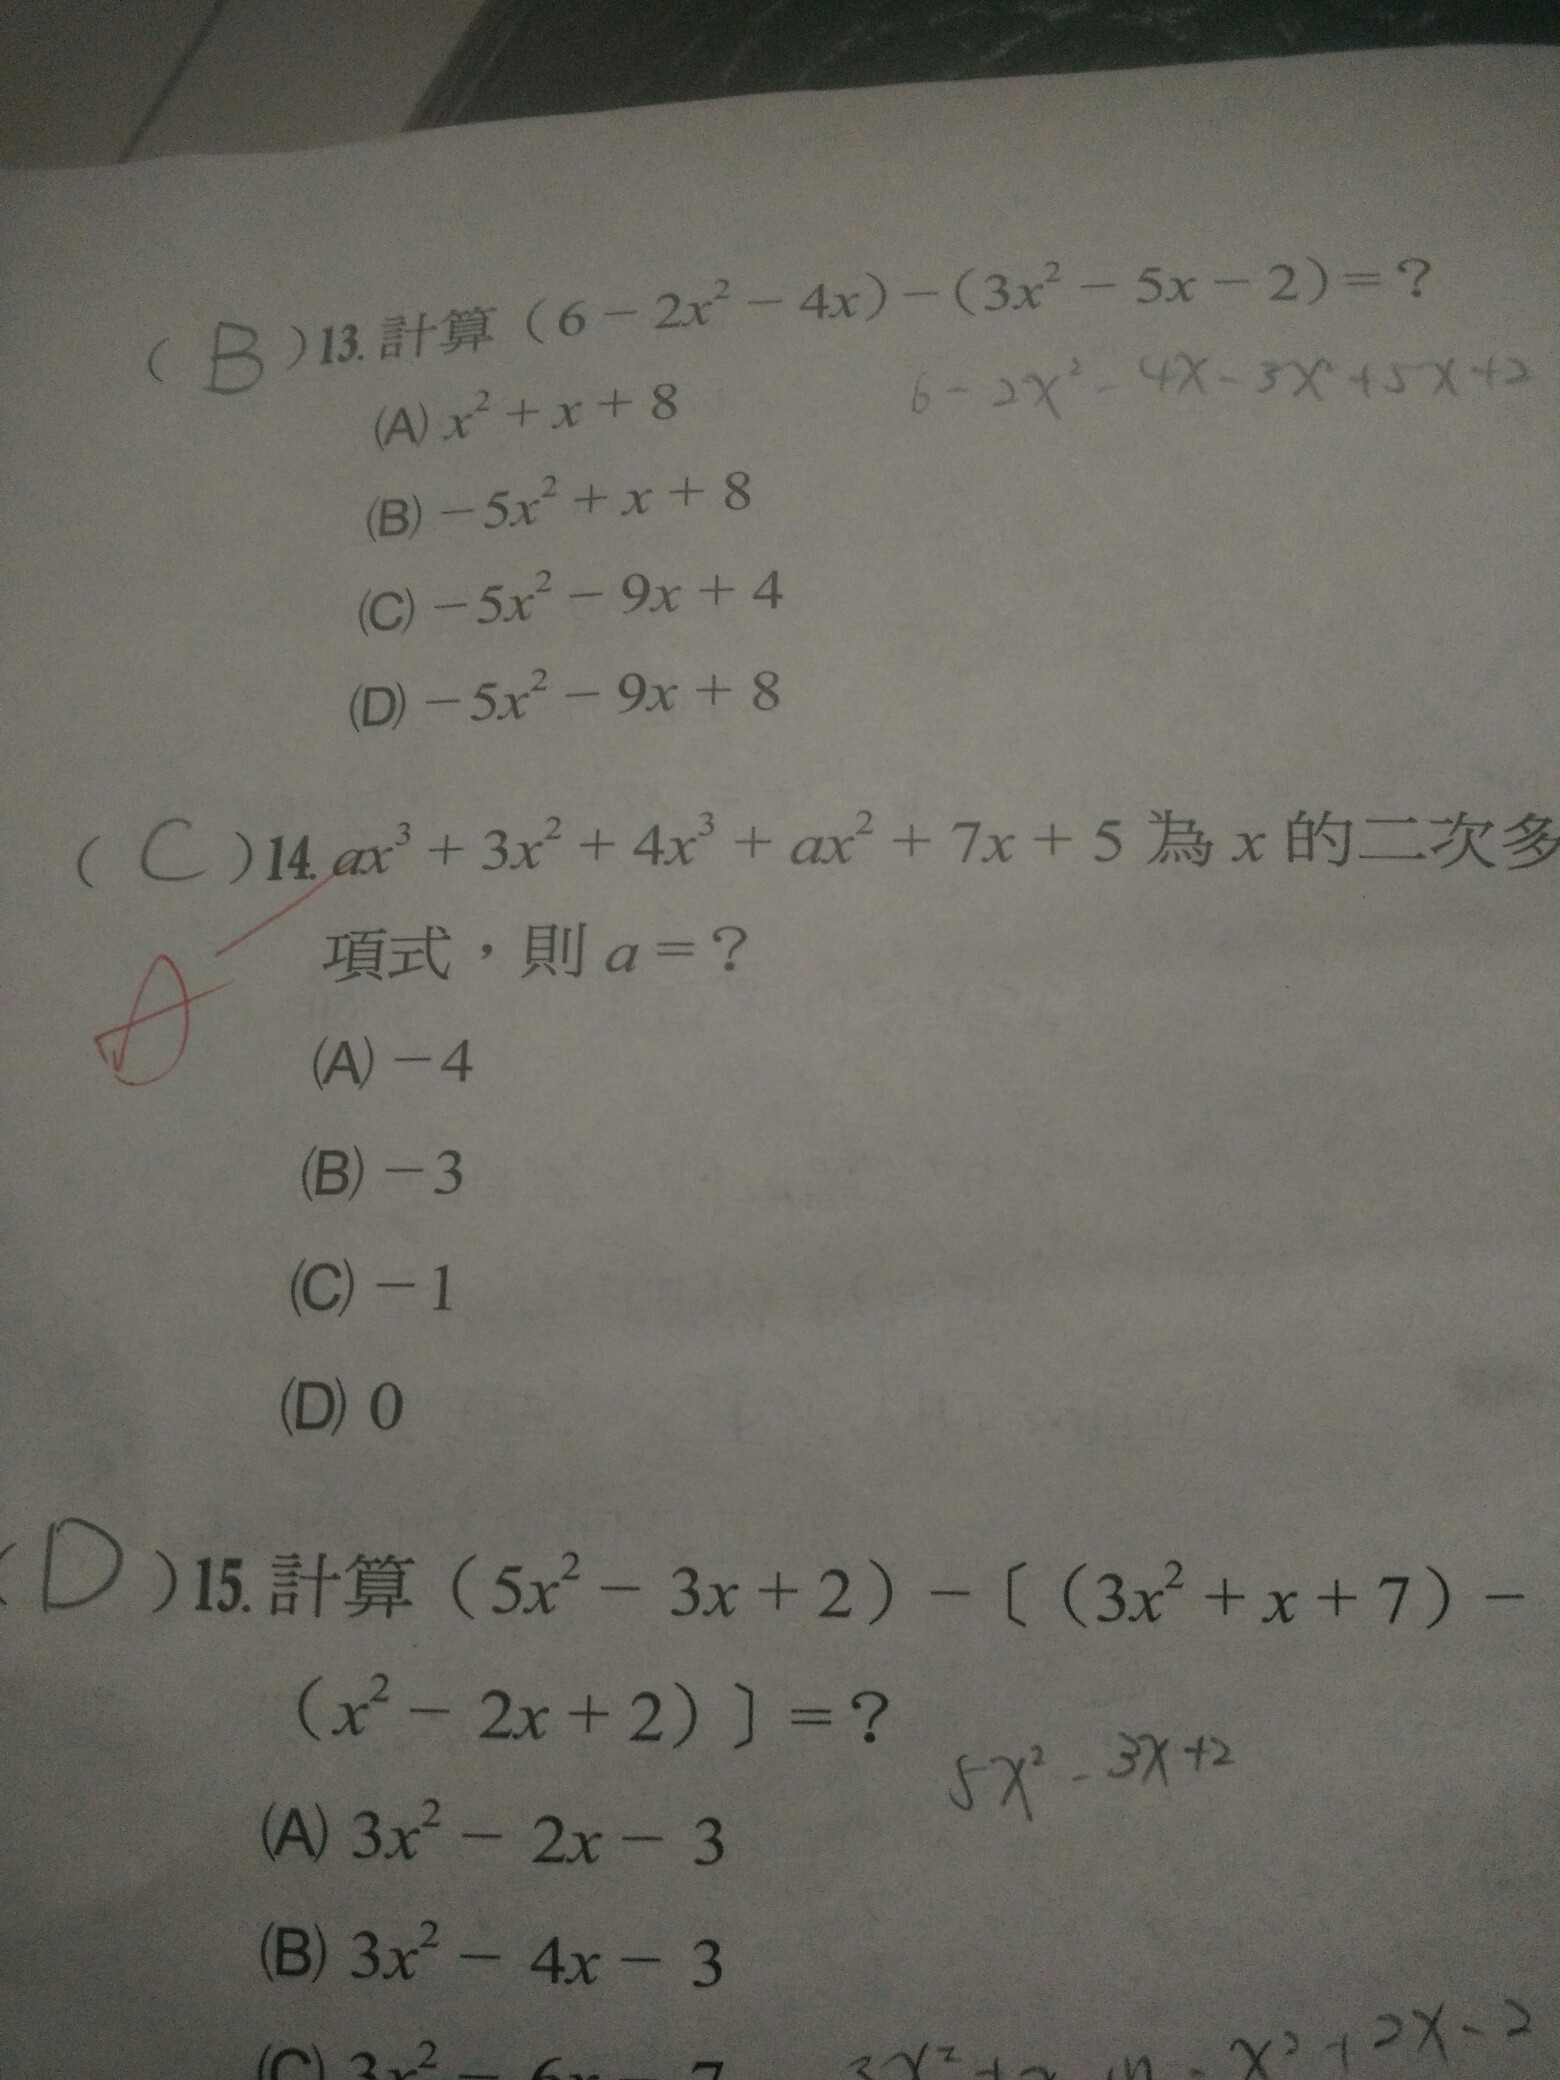 ( B )13. 計算（6－2x²－4x）－（3x²－5x－2）＝？
6－2x²－4x－3x²＋5x＋2
(A) x²＋x＋8
(B) －5x²＋x＋8
(C) －5x²－9x＋4
(D) －5x²－9x＋8
( C )14. ax³＋3x²＋4x³＋ax²＋7x＋5 為 x 的二次多
項式，則 a＝？
A
(A) －4
(B) －3
(C) －1
(D) 0
( D )15. 計算（5x²－3x＋2）－〔（3x²＋x＋7）－
（x²－2x＋2）〕＝？
5x²－3x＋2
(A) 3x²－2x－3
(B) 3x²－4x－3
(C) 3x²－6x－7
－x²＋2x－2